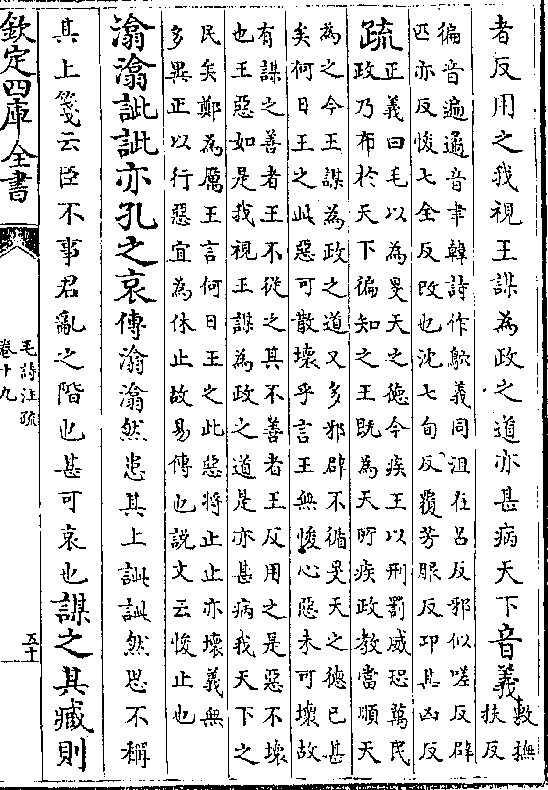 者反用之我視王謀為政之道亦甚病天下音義敷撫
扶反
徧音遍遹音聿韓詩作鴥義同沮在呂反邪似嗟反辟
匹亦反悛七全反改也沈七旬反覆芳服反邛其凶反
疏正義曰毛以為旻天之徳今疾王以刑罰威恐萬民
政乃布於天下徧知之王既為天所疾政教當順天
為之今王謀為政之道又多邪辟不循旻天之德已甚
矣何日王之此惡可散壊乎言王無悛心惡未可壞故
有謀之善者王不從之其不善者王反用之是惡不壊
也王惡如是我視王謀為政之道是亦甚病我天下之
民矣鄭為厲王言何日王之此惡將止止亦壊義無
多異正以行惡宜為休止故易傳也説文云悛止也
潝潝訿訿亦孔之哀傳潝潝然患其上訿訿然思不稱
其上箋云臣不事君亂之階也甚可哀也謀之其臧則
欽定四庫全書
毛詩注疏
卷十九
五十